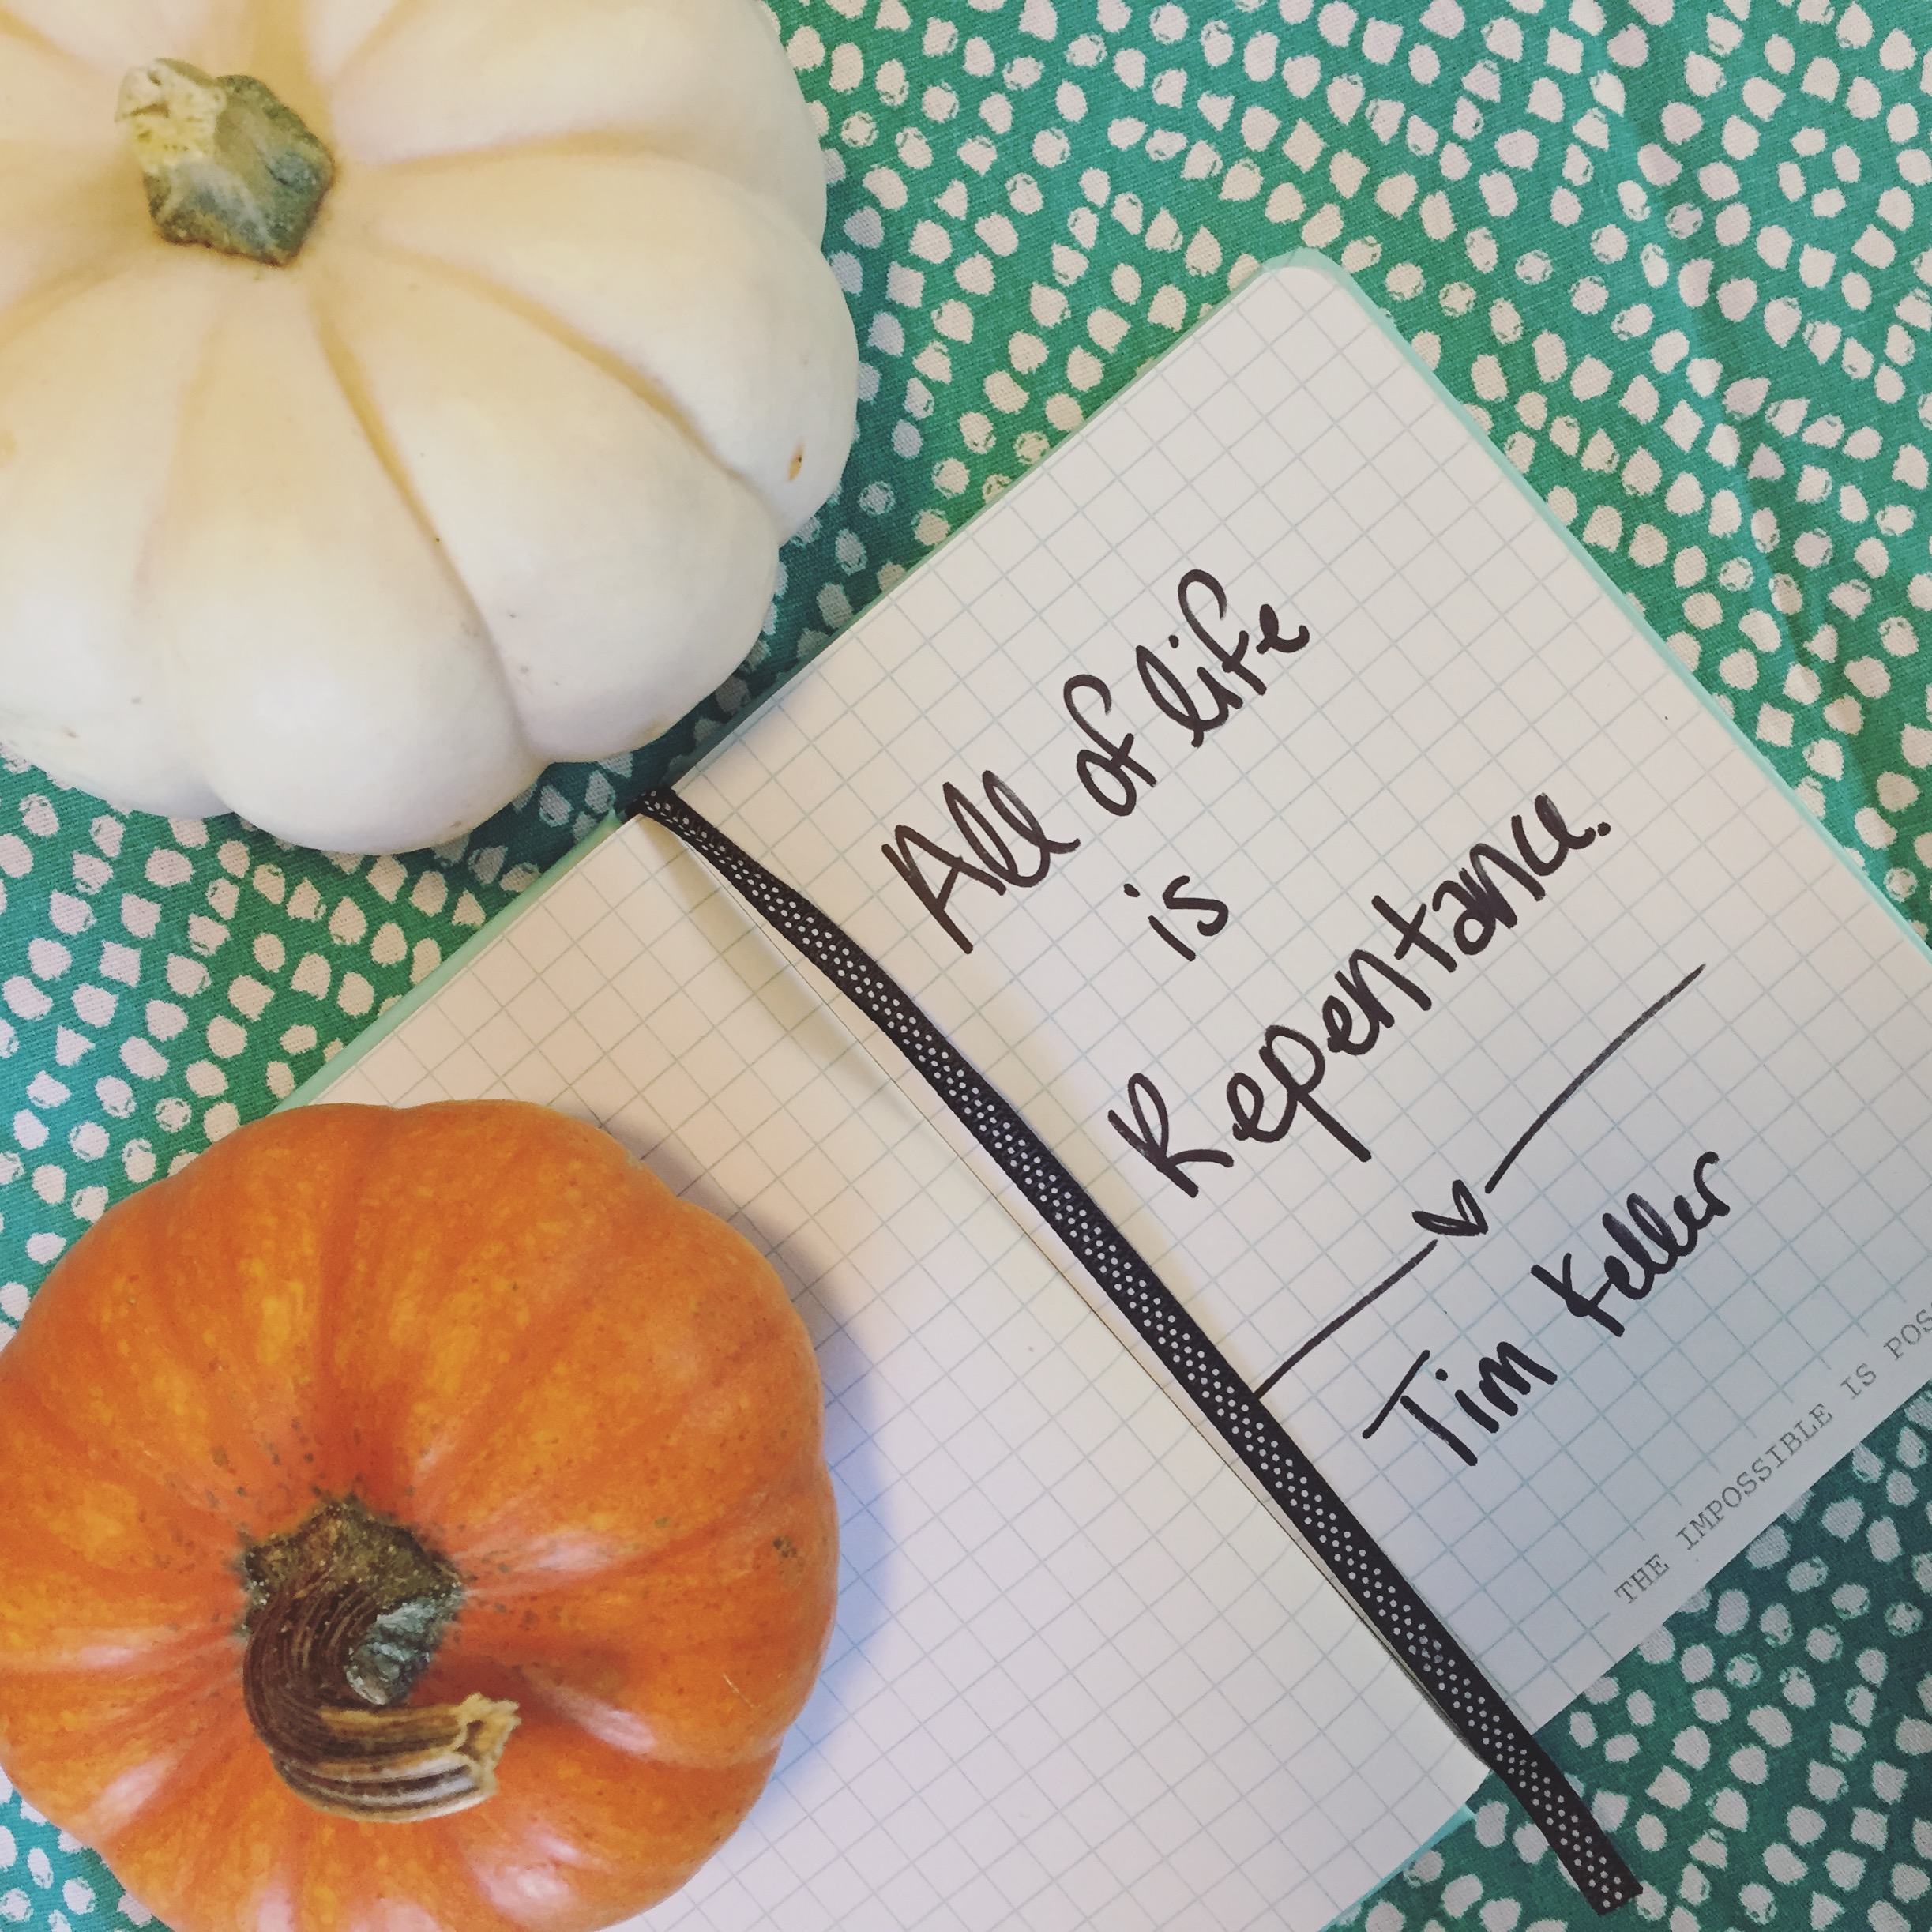 All of life
is
Repentance.
Tim Keller
THE IMPOSSIBLE IS